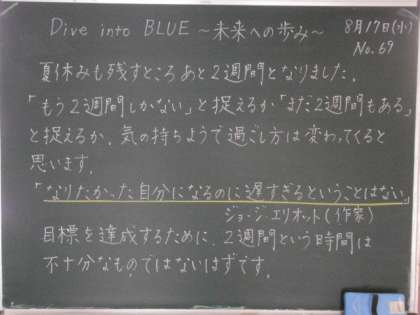 Dive into BLUE ~未来への歩み~
8月17日(水)
No.69
夏休みも残すところあと2週間となりました。
「もう2週間しかない」と捉えるか「まだ2週間もある」
と捉えるか、気の持ちようで過ごし方は変わってくると
思います。
「なりたかった自分になるのに遅すぎるということはない」
ジョージ・エリオット(作家)
目標を達成するために、2週間という時間は
不十分なものではないはずです。